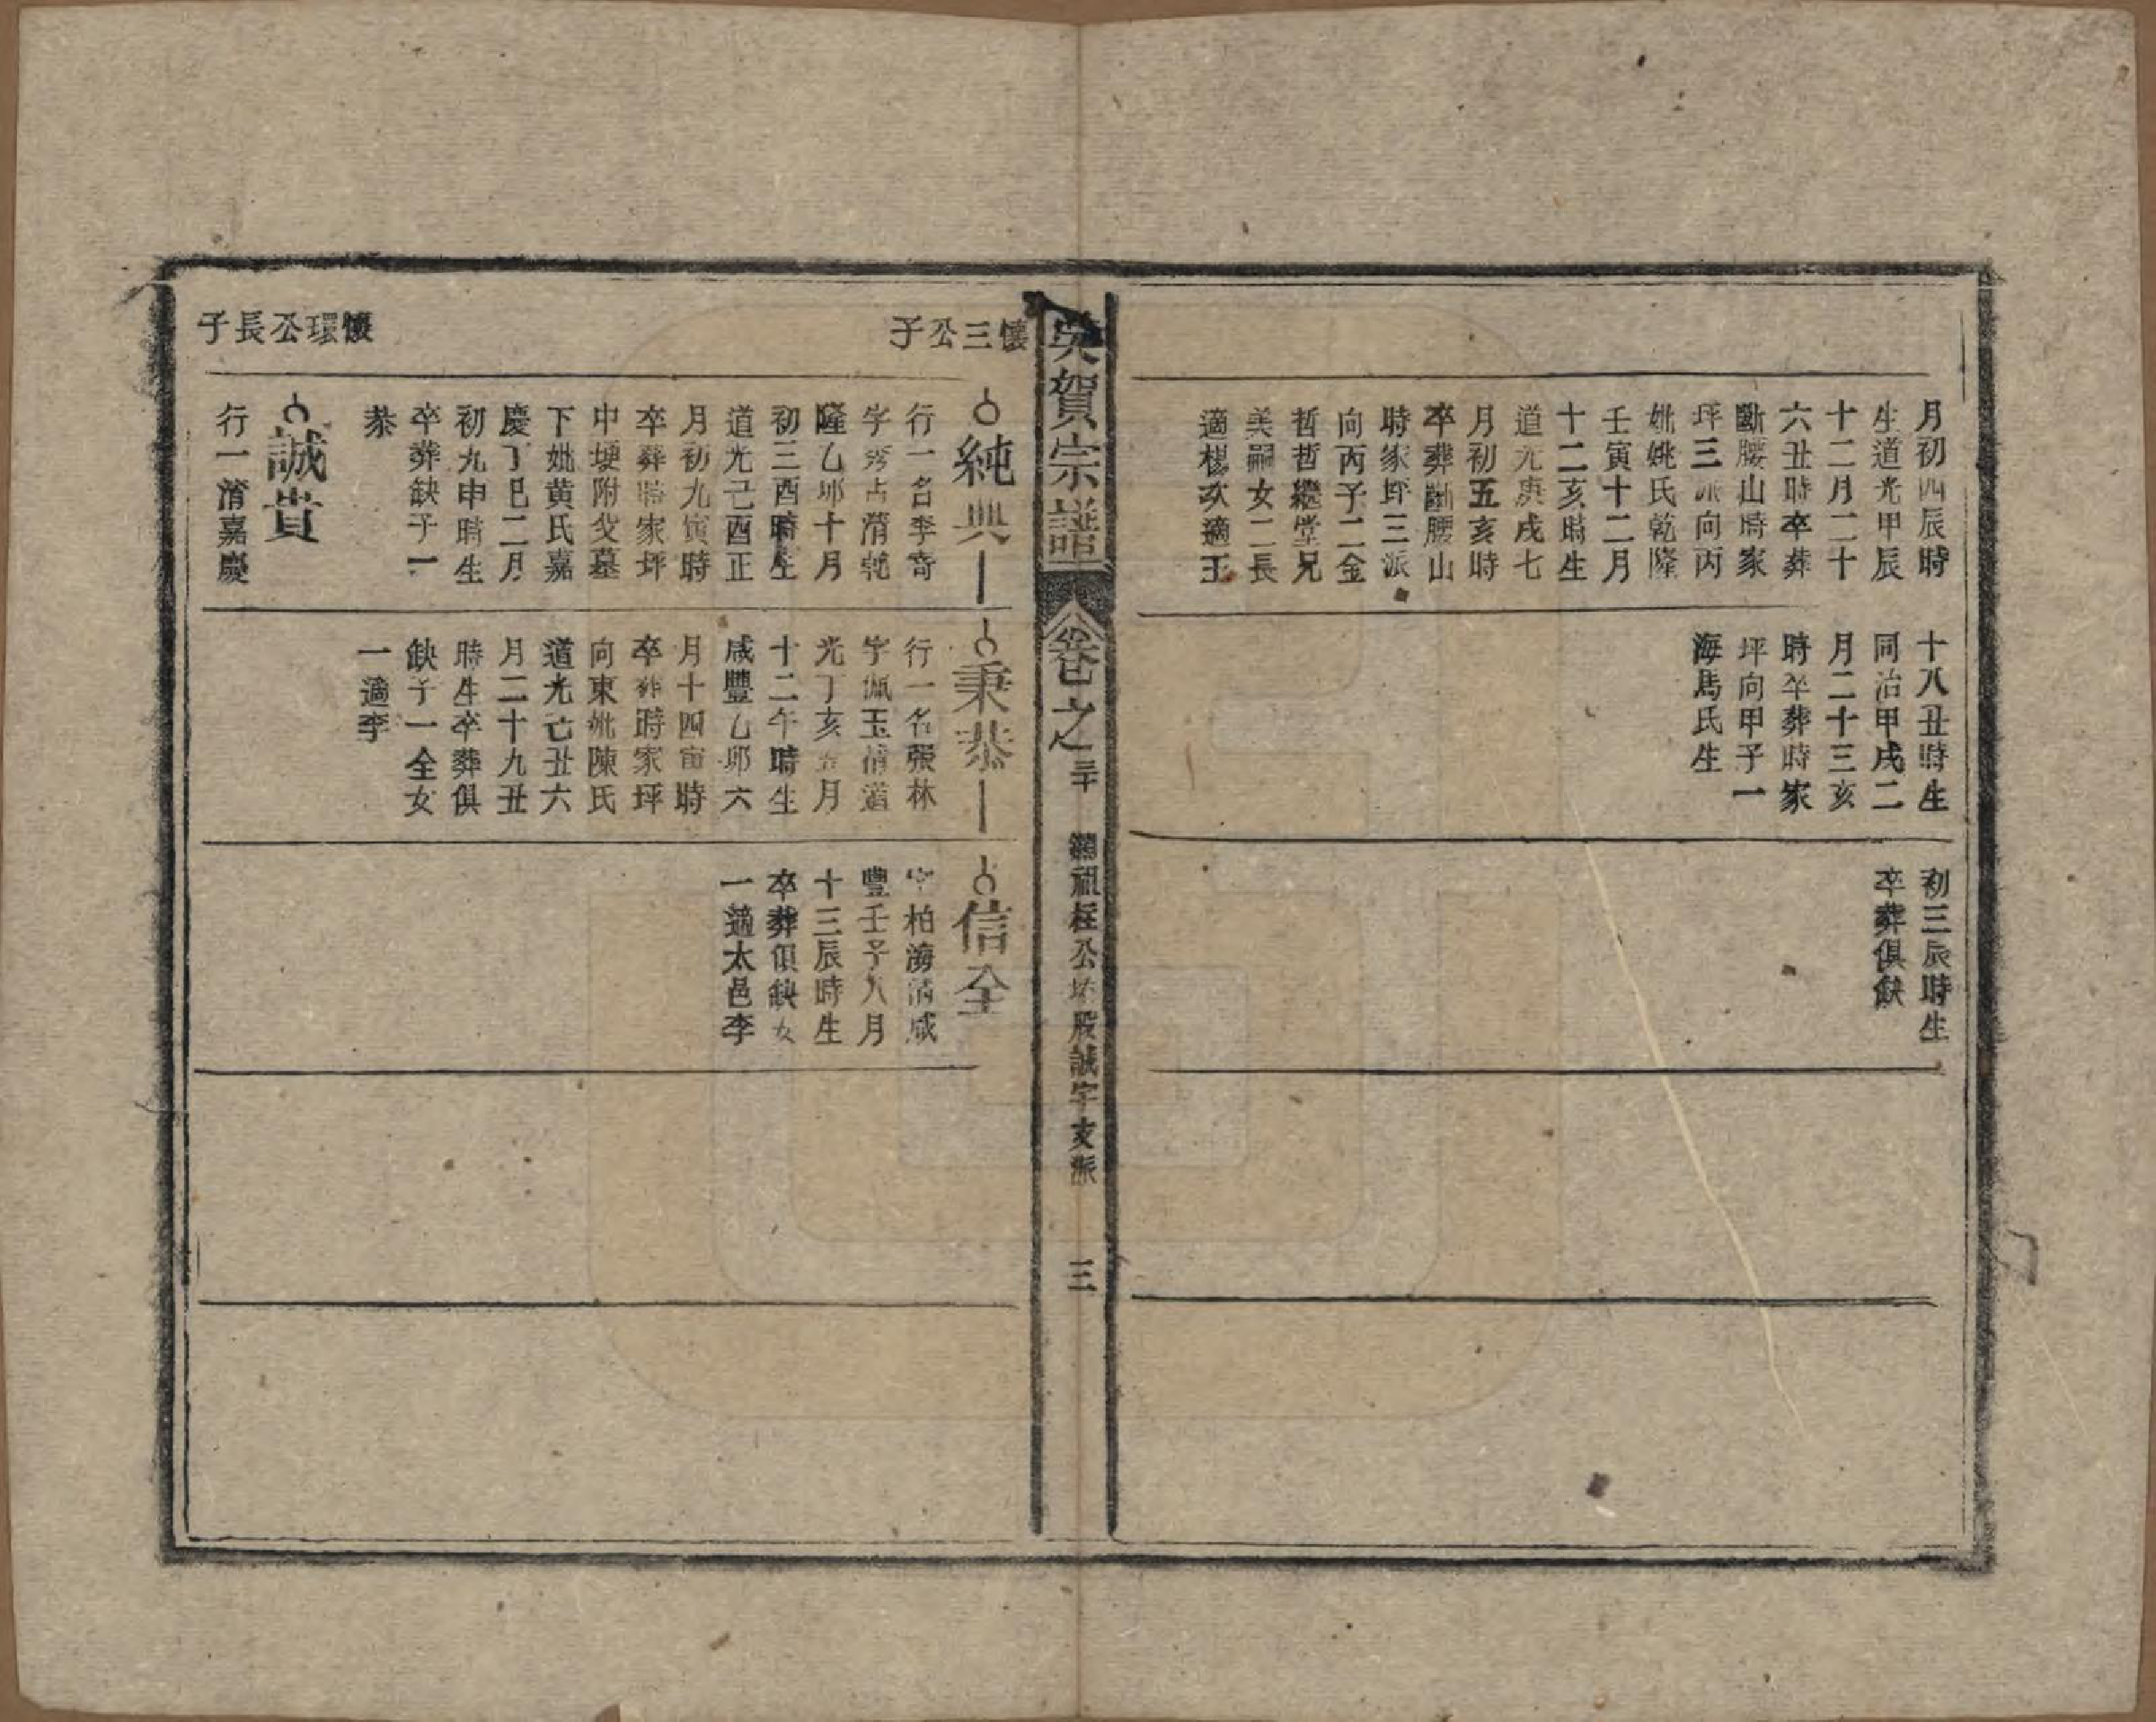 月初四辰時
生道光甲辰
十二月二十
六丑時卒葬
斷腰山時家
坪三派向丙
妣姚氏乾隆
壬寅十二月
十二亥時生
道光庚戌七
月初五亥時
卒葬斷腰山
時家坪三派
向丙子二金
哲哲繼堂兄
美嗣女二長
適楊次適王
十八丑時生
同治甲戌二
月二十三亥
時卒葬時家
坪向甲子一
海馬氏生
初三辰時生
卒葬俱缺
吳賀宗譜
卷之三十
祖柱公 股誠字支派
三
懷三公子
純典
行一名李奇
字秀占清乾
隆乙卯十月
初三酉時生
道光己酉正
月初九寅時
卒葬時家坪
中埂附父墓
下妣黃氏嘉
慶丁巳二月
初九申時生
卒葬缺子一
恭
懷環公長子
誠貴
行一清嘉慶
秉恭
行一名張林
字佩玉清道
光丁亥五月
十二午時生
咸豐乙卯六
月十四寅時
卒葬時家坪
向東妣陳氏
道光己丑六
月二十九丑
時生卒葬俱
缺子一全女
一適李
信全
字柏海清咸
豐壬子八月
十三辰時生
卒葬俱缺女
一適太邑李